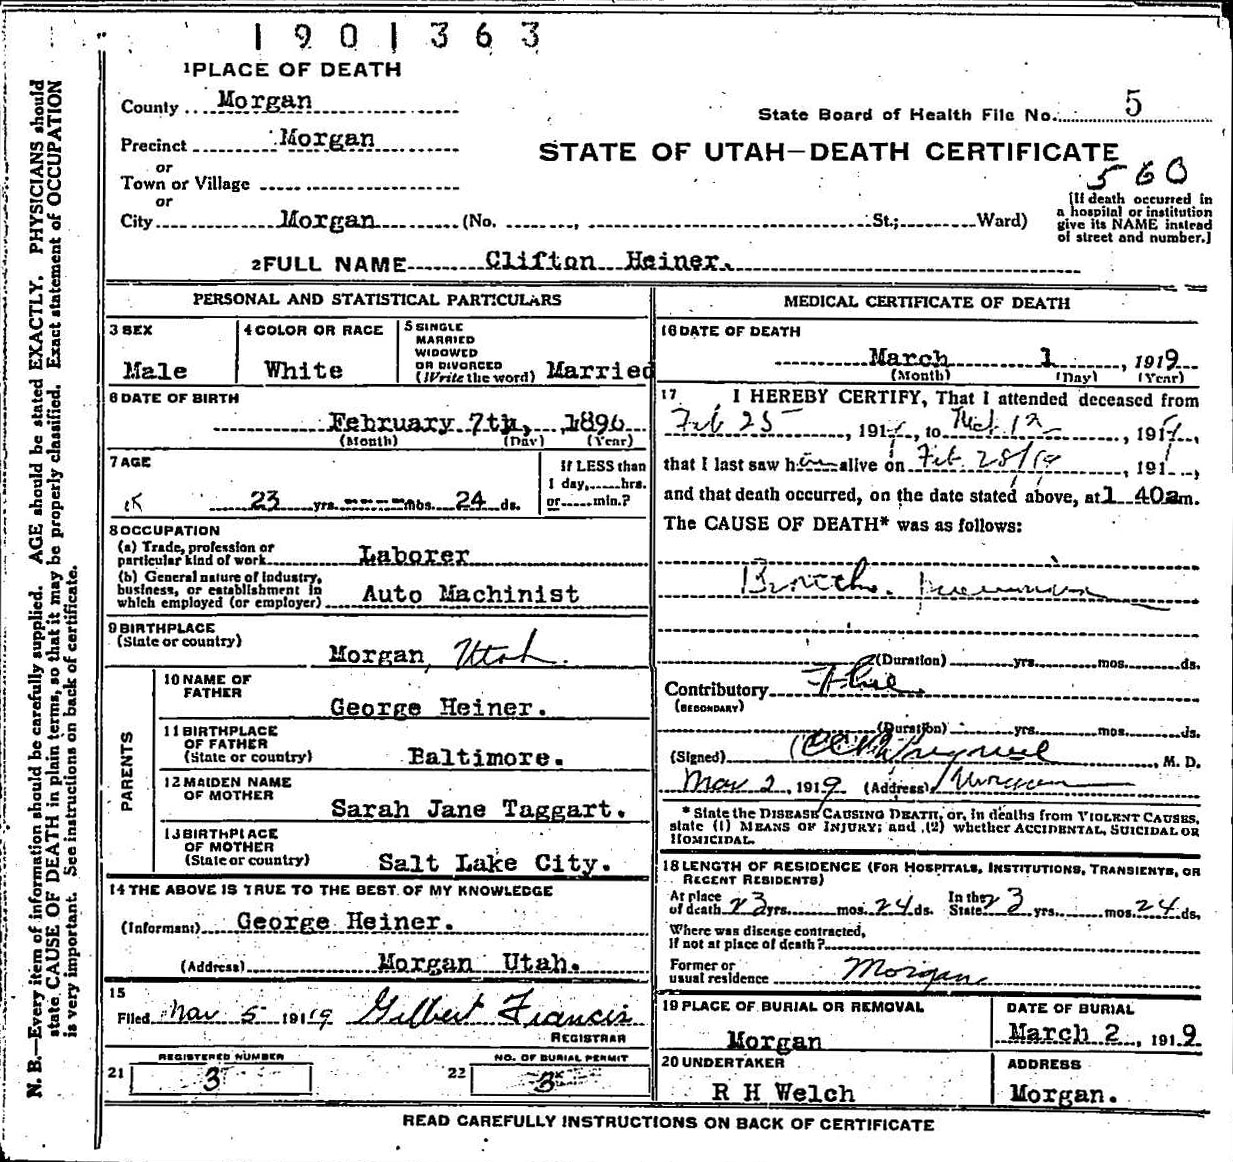 1901363
1 PLACE OF DEATH
County Morgan
State Board of Health File No. 5
Precinct Morgan
STATE OF UTAH—DEATH CERTIFICATE
560
or
Town or Village
or
City Morgan (No. , St.; Ward)
[If death occurred in
a hospital or institution
give its NAME instead
of street and number.]
2 FULL NAME Clifton Heiner.
PERSONAL AND STATISTICAL PARTICULARS
3 SEX
Male
4 COLOR OR RACE
White
5 SINGLE
MARRIED
WIDOWED
OR DIVORCED
(Write the word) Married
6 DATE OF BIRTH
February 7th, 1896
(Month) (Day) (Year)
7 AGE
23 yrs. mos. 24 ds.
If LESS than
1 day, hrs.
or min.?
8 OCCUPATION
(a) Trade, profession or
particular kind of work Laborer
(b) General nature of Industry,
business, or establishment in
which employed (or employer) Auto Machinist
9 BIRTHPLACE
(State or country)
Morgan, Utah.
PARENTS
10 NAME OF
FATHER
George Heiner.
11 BIRTHPLACE
OF FATHER
(State or country) Baltimore.
12 MAIDEN NAME
OF MOTHER
Sarah Jane Taggart.
13 BIRTHPLACE
OF MOTHER
(State or country) Salt Lake City.
14 THE ABOVE IS TRUE TO THE BEST OF MY KNOWLEDGE
(Informant) George Heiner.
(Address) Morgan Utah.
15
Filed Mar 5 1919 Gilbert Francis
REGISTRAR
REGISTERED NUMBER
21 3
NO. OF BURIAL PERMIT
22 3
MEDICAL CERTIFICATE OF DEATH
16 DATE OF DEATH
March 1, 1919
(Month) (Day) (Year)
17 I HEREBY CERTIFY, That I attended deceased from
Feb 25, 1919, to Mch 1st, 1919,
that I last saw him alive on Feb. 28/19, 191 ,
and that death occurred, on the date stated above, at 1 40am.
The CAUSE OF DEATH* was as follows:
Broncho. pneumonia
(Duration) yrs. mos. ds.
Contributory Flue
(SECONDARY)
(Duration) yrs. mos. ds.
(Signed) , M. D.
Mar 2, 1919 (Address) Morgan
*State the DISEASE CAUSING DEATH, or, in deaths from VIOLENT CAUSES,
state (1) MEANS OF INJURY; and (2) whether ACCIDENTAL, SUICIDAL OR
HOMICIDAL.
18 LENGTH OF RESIDENCE (FOR HOSPITALS, INSTITUTIONS, TRANSIENTS, OR
RECENT RESIDENTS)
At place
of death 23 yrs. mos. 24 ds. In the
State 23 yrs. mos. 24 ds.
Where was disease contracted,
If not at place of death?
Former or
usual residence Morgan
19 PLACE OF BURIAL OR REMOVAL
Morgan
DATE OF BURIAL
March 2, 1919
20 UNDERTAKER
R H Welch
ADDRESS
Morgan.
READ CAREFULLY INSTRUCTIONS ON BACK OF CERTIFICATE
N. B.—Every item of information should be carefully supplied. AGE should be stated EXACTLY. PHYSICIANS should
state CAUSE OF DEATH in plain terms, so that it may be properly classified. Exact statement of OCCUPATION
is very important. See instructions on back of certificate.